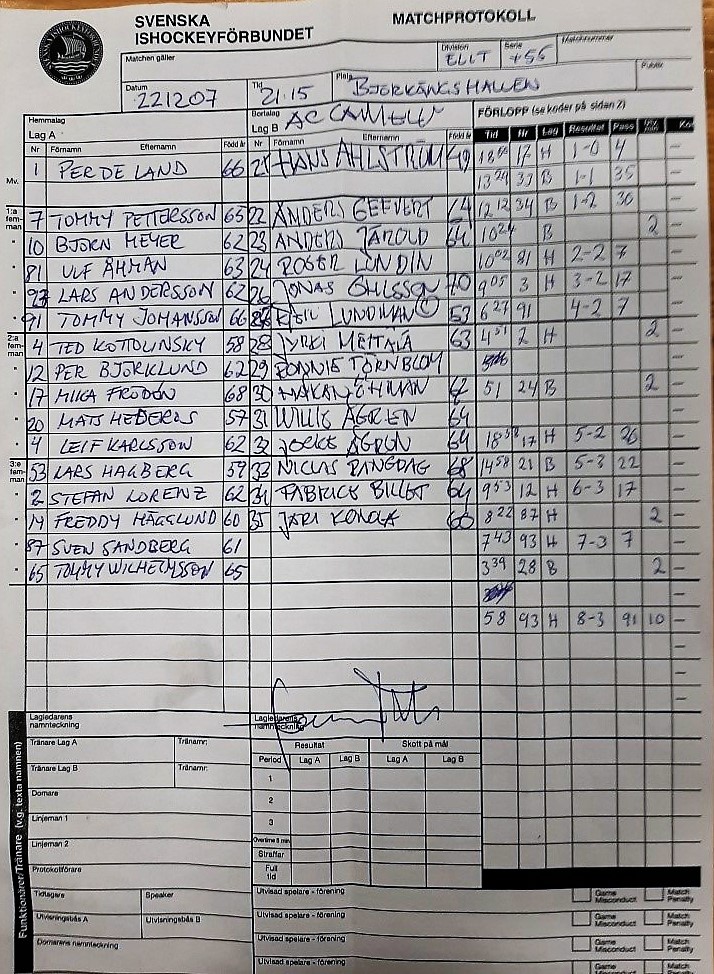 SVENSKA
ISHOCKEYFÖRBUNDET
MATCHPROTOKOLL
Matchen gäller
Division
ELIT
Serie
+55
Matchnummer
Datum
221207
Tid
21.15
Plats
BJÖRKÄNGSHALLEN
Publik
Hemmalag
Lag A
Bortalag
Lag B AC CAMELEN
FÖRLOPP (se koder på sidan 2)
Nr Förnamn Efternamn Född år Nr Förnamn Efternamn Född år Tid Nr Lag Resultat Pass Utv. min
Mv. 1 PER DE LAND 66 HANS AHLSTRÖM 49 17 H 1-0 4 —
1324 B 1-1 35
1:a fem-man 7 TOMMY PETTERSSON 65 22 ANDERS GEEVERT 64 1212 34 B 1-2 30 —
10 BJÖRN MEYER 62 23 ANDERS JAROLD 64 1024 B 2 —
81 ULF ÅHMAN 63 24 ROGER LUNDIN 1002 81 H 2-2 7 —
LARS ANDERSSON 62 26 JONAS OHLSSON 70 905 3 H 3-2 17 —
91 TOMMY JOHANSSON 66 LUNDMAN © 53 627 91 4-2 7 —
2:a fem-man 4 TED KOTTOLINSKY 58 28 JYRKI 63 451 2 H 2 —
12 PER BJÖRKLUND 62 29 RONNIE TÖRNBLOM —
17 MIKA FRODÉN 68 30 HÅKAN ÖHMAN 62 51 24 B 2 —
20 MATS HEDEROS 57 31 WILLIE ÅGREN 64 —
4 LEIF KARLSSON 62 32 JOCKE 64 1858 17 H 5-2 26 —
3:e fem-man 53 LARS HAGBERG 59 33 NICLAS RINGDAG 68 1458 21 B 5-3 22 —
2 STEFAN LORENZ 62 34 FABRICE BILLET 64 953 12 H 6-3 17 —
14 FREDDY HÄGGLUND 60 35 JARI 60 822 87 H 2 —
87 SVEN SANDBERG 61 743 93 H 7-3 7 —
65 TOMMY WILHELMSSON 65 339 28 B 2 —
—
58 93 H 8-3 91 10 —
—
—
—
Lagledarens
namnteckning
Lagledarens
namnteckning
Funktionärer/Tränare (v.g. texta namnen)
Tränare Lag A
Tränarnr:
Resultat
Skott på mål
Period Lag A Lag B Lag A Lag B
Tränare Lag B
Tränarnr:
1
Domare
2
Linjeman 1
3
Linjeman 2
Overtime 5 min
Straffar
Protokollförare
Full tid
Tidtagare
Speaker
Utvisad spelare - förening
Game Misconduct
Match Penalty
Utvisningsbås A
Utvisningsbås B
Utvisad spelare - förening
Game Misconduct
Match Penalty
Domarens namnteckning
Utvisad spelare - förening
Game Misconduct
Match Penalty
Utvisad spelare - förening
Game
Match